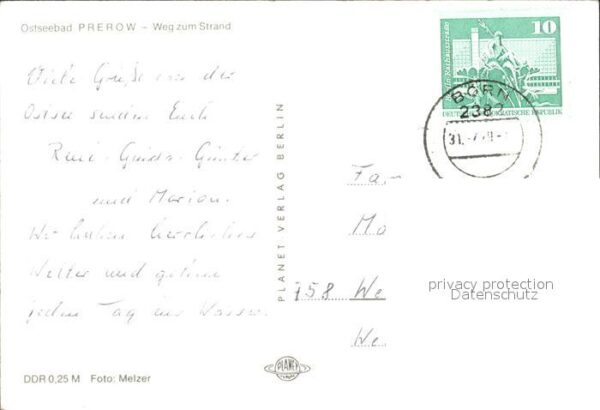 Ostseebad PREROW – Weg zum Strand
Viele Grüße von der
Ostsee senden Euch
René, Guido, Günter
und Marion.
Wir haben herrliches
Wetter und gehen
jeden Tag ins Wasser.
PLANET VERLAG BERLIN
10
BORN
2382
DEUTSCHE DEMOKRATISCHE REPUBLIK
Fa
Mo
758 We
We
privacy protection
Datenschutz
PLANET
DDR 0,25 M Foto: Melzer